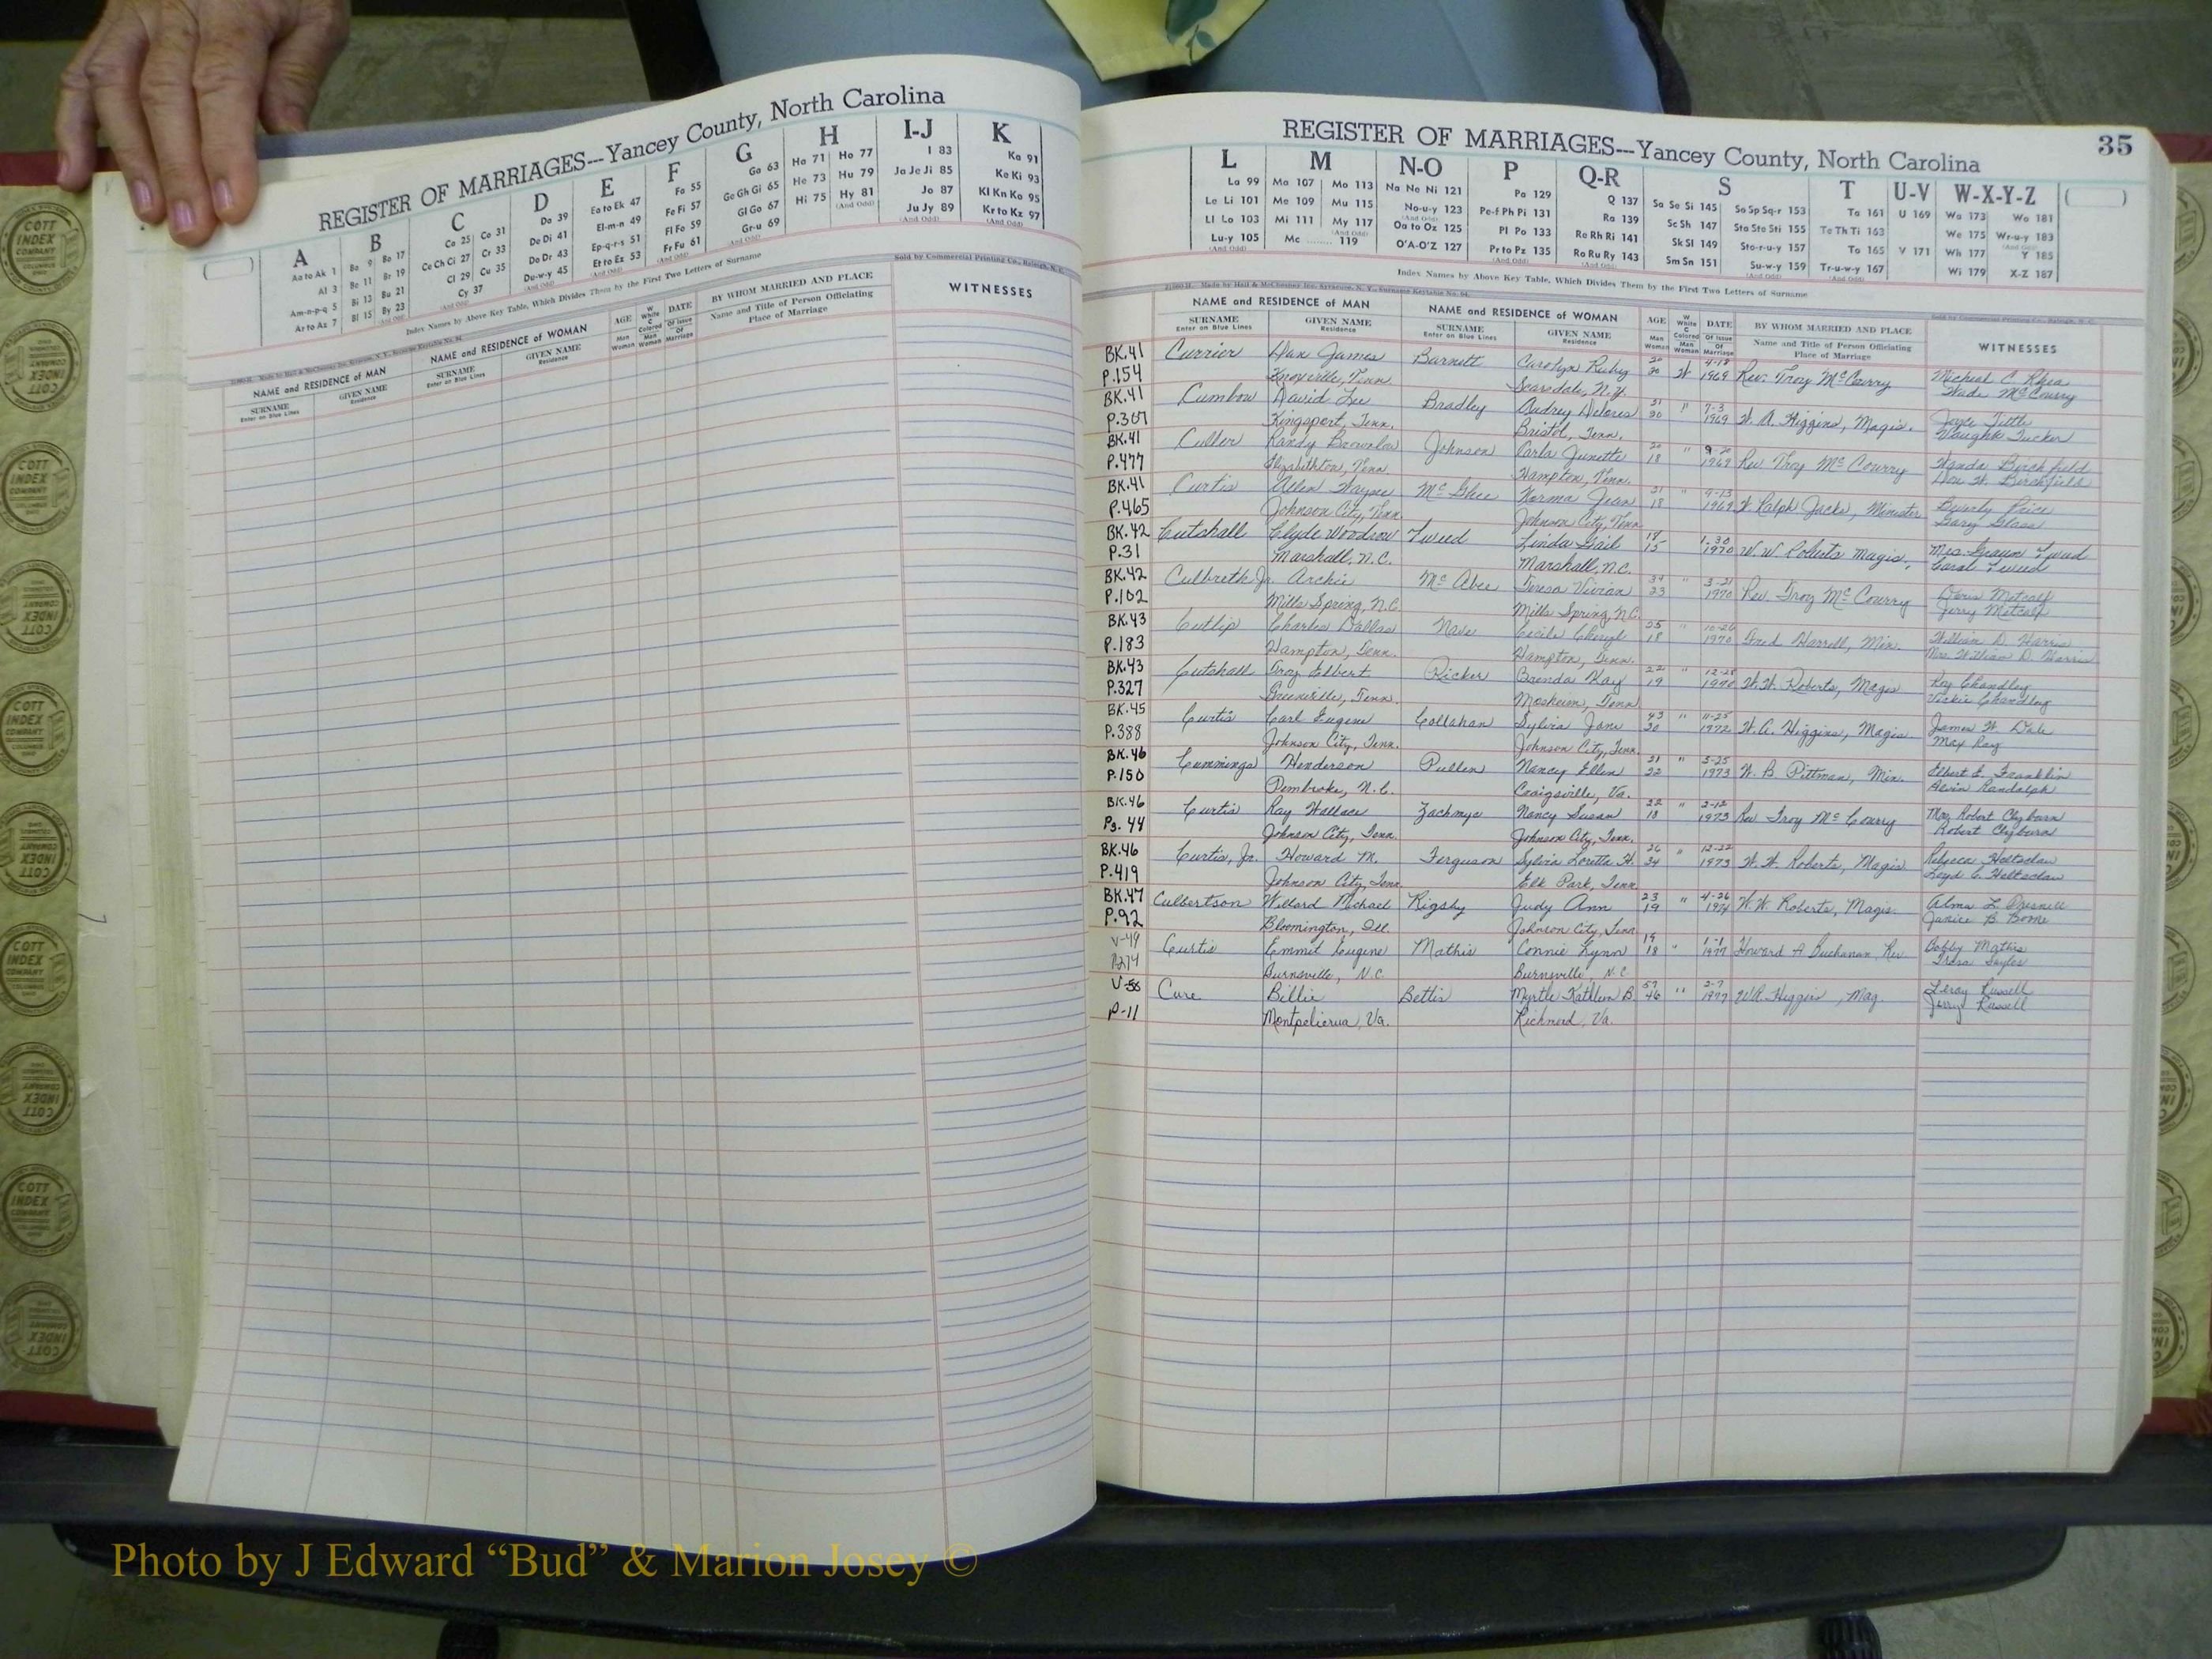 REGISTER OF MARRIAGES---Yancey County, North Carolina
A B C D E F G H I-J K
Aa to Ak 1 Ba 9 Bo 17 Ca 25 Co 31 Da 39 Ea to Ek 47 Fa 55 Ga 63 Ha 71 Ho 77 I 83 Ka 91
Al 3 Be 11 Br 19 Ce Ch Ci 27 Cr 33 De Di 41 El-m-n 49 Fe Fi 57 Ge Gh Gi 65 He 73 Hu 79 Ja Je Ji 85 Ke Ki 93
Am-n-p-q 5 Bi 13 Bu 21 Cl 29 Cu 35 Do Dr 43 Ep-q-r-s 51 Fl Fo 59 Gl Go 67 Hi 75 Hy 81 Jo 87 Kl Kn Ko 95
Ar to Az 7 Bl 15 By 23 Cy 37 Du-w-y 45 Et to Ez 53 Fr Fu 61 Gr-u 69 Ju Jy 89 Kr to Kz 97
Index Names by Above Key Table, Which Divides Them by the First Two Letters of Surname
Sold by Commercial Printing Co., Raleigh, N. C.
NAME and RESIDENCE OF MAN NAME and RESIDENCE of WOMAN AGE DATE BY WHOM MARRIED AND PLACE WITNESSES
SURNAME GIVEN NAME SURNAME GIVEN NAME Name and Title of Person Officiating
Enter on Blue Lines Residence Enter on Blue Lines Residence Place of Marriage
REGISTER OF MARRIAGES---Yancey County, North Carolina 35
L M N-O P Q-R S T U-V W-X-Y-Z
La 99 Ma 107 Mo 113 Na Ne Ni 121 Pa 129 Q 137 Sa Se Si 145 So Sp Sq-r 153 Ta 161 U 169 Wa 173 Wo 181
Le Li 101 Me 109 Mu 115 No-u-y 123 Pe-f Ph Pi 131 Ra 139 Sc Sh 147 Sta Ste Sti 155 Te Th Ti 163 We 175 Wr-u-y 183
Ll Lo 103 Mi 111 My 117 Oa to Ox 125 Pl Po 133 Re Rh Ri 141 Sk Sl 149 Sto-r-u-y 157 To 165 V 171 Wh 177 Y 185
Lu-y 105 Mc 119 O'A-O'Z 127 Pr to Pz 135 Ro Ru Ry 143 Sm Sn 151 Su-w-y 159 Tr-u-w-y 167 Wi 179 X-Z 187
Index Names by Above Key Table, Which Divides Them by the First Two Letters of Surname
NAME and RESIDENCE OF MAN NAME and RESIDENCE of WOMAN AGE DATE BY WHOM MARRIED AND PLACE WITNESSES
SURNAME GIVEN NAME SURNAME GIVEN NAME Name and Title of Person Officiating
Enter on Blue Lines Residence Enter on Blue Lines Residence Place of Marriage
BK.41 Currier Dan James Barnett Carolyn Ruby 20 W 4-18 Rev. Troy McCourry Micheal C. Rhea
P.154 Knoxville, Tenn. Scarsdale, N.Y. 20 1969 Wade McCourry
BK.41 Cumbow David Lee Bradley Audrey Delores 31 " 7-3 W. A. Higgins, Magis. Joyce Tittle
P.307 Kingsport, Tenn. Bristol, Tenn. 30 1969 Vaughn Tucker
BK.41 Culler Randy Brownlow Johnson Carla Junette 20 " Rev Troy McCourry Wanda Birchfield
P.477 Elizabethton, Tenn. Hampton, Tenn. 18 1969 Birchfield
BK.41 Curtis Allen Wayne McGhee Norma Jean 21 " 9-13 W Ralph Jacks, Minister Beverly Price
P.465 Johnson City, Tenn Johnson City, Tenn 18 1969 Gary Glass
BK.42 Cutshall Clyde Woodrow Tweed Linda Gail 18 1-30 W.W Roberts Magis, Mrs. Tweed
P.31 Marshall, N.C. Marshall, N.C. 15 1970 Carol Tweed
BK.42 Culbreth Jr. Archie McAbee Teresa Vivian 34 " 3-21 Rev. Troy McCourry Doris Metcalf
P.102 Mills Spring, N.C. Mills Spring, N.C. 23 1970 Jerry Metcalf
BK.43 Cutlip Charles Dallas Nave Cecile Cheryl 25 " 10-26 Fred Harrell, Min. William D. Harris
P.183 Hampton, Tenn. Hampton, Tenn. 18 1970 Mrs William D. Harris
BK.43 Cutshall Troy Elbert Ricker Brenda Kay 22 " 12-28 W.W. Roberts, Magis Roy Chandley
P.327 Greenville, Tenn. Mosheim, Tenn 19 1970 Vickie Chandley
BK.45 Curtis Carl Eugene Callahan Sylvia Jane 43 " 11-25 W.A. Higgins, Magis James W. Dale
P.388 Johnson City, Tenn. Johnson City, Tenn. 30 1972 Max Ray
BK.46 Cummings Henderson Pullen Nancy Ellen 21 " 5-25 W. B Pittman, Min. Elbert E. Franklin
P.150 Pembroke, N.C. Craigsville, Va. 22 1973 Alvin Randolph
BK.46 Curtis Ray Wallace Zachmye Nancy Susan 22 " 2-12 Rev Troy McCourry Mrs Robert Clyburn
Pg. 44 Johnson City, Tenn. Johnson City, Tenn. 18 1973 Robert Clyburn
BK.46 Curtis, Jr. Howard M. Ferguson Sylvia Loretta H. 26 " 12-22 W.W. Roberts, Magis Rebecca Holtsclaw
P.419 Johnson City, Tenn. Elk Park, Tenn 34 1973 Loyd C. Holtsclaw
BK.47 Culbertson Willard Michael Rigsby Judy Ann 23 " 4-26 W.W. Roberts, Magis. Alma L. Presnell
P.92 Bloomington, Ill. Johnson City, Tenn 19 1974 Janice B. Boone
V-49 Curtis Emmit Eugene Mathis Connie Lynn 19 " 1-1 Howard A Buchanan, Rev. Bobby Mathis
P274 Burnsville, N.C. Burnsville N.C 18 1977
Cure Billie Bettis Myrtle Kathleen B. 57 " 2-7 W.A. Higgins, Mag. Leroy Russell
P-11 Va. Richmond, Va. 46 1977 Jerry Russell
Photo by J Edward “Bud” & Marion Josey ©